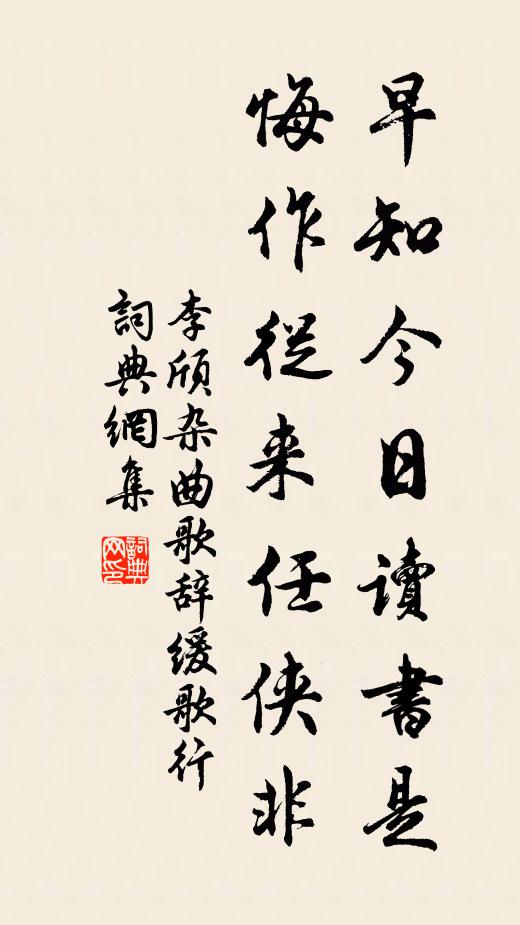 早知今日讀書是
悔作從来任俠非
李頎杂曲歌辞缓歌行
詞典網集
詞典网印